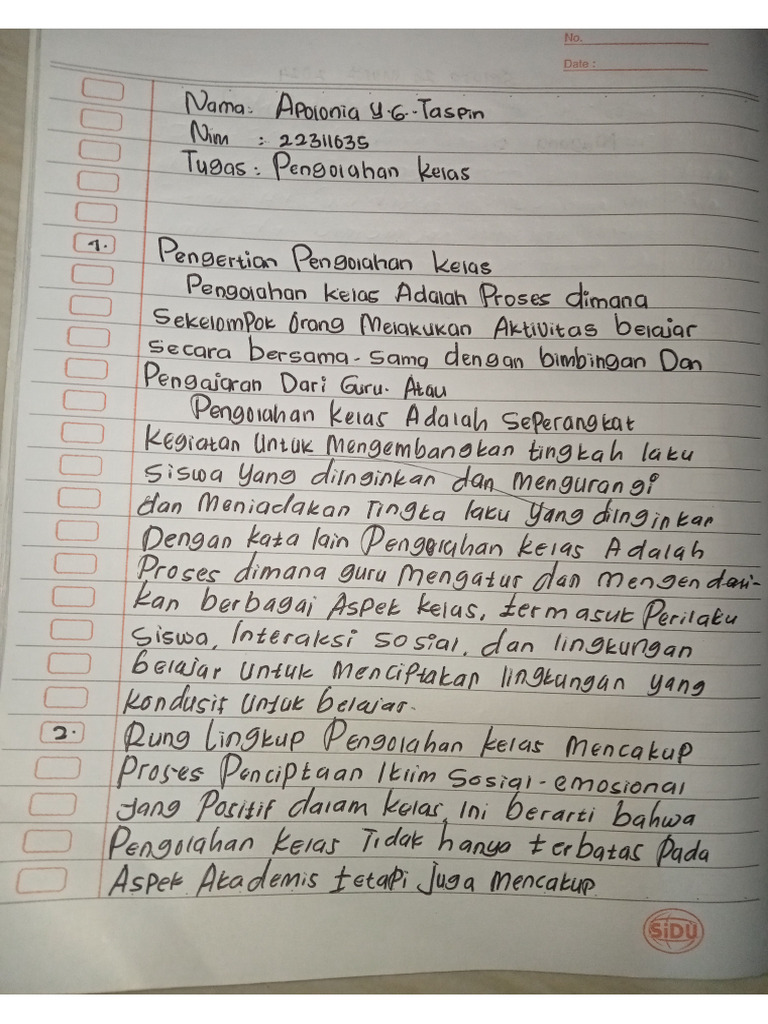 No.
Date :
Nama: Apolonia Y.G. Taspin
Nim : 22311635
Tugas: Pengolahan kelas
1. Pengertian Pengolahan kelas
Pengolahan kelas Adalah Proses dimana
Sekelompok Orang Melakukan Aktivitas belajar
secara bersama-sama dengan bimbingan Dan
Pengajaran Dari Guru. Atau
Pengolahan kelas Adalah seperangkat
kegiatan Untuk Mengembangkan tingkah laku
siswa yang diinginkan dan Mengurangi
dan Meniadakan Tingka laku yang diinginkan
Dengan kata lain Pengolahan kelas Adalah
Proses dimana guru Mengatur dan mengendali-
kan berbagai Aspek kelas, termasuk Perilaku
siswa, Interaksi sosial, dan lingkungan
belajar untuk Menciptakan lingkungan yang
kondusif untuk belajar.
2. Rung Lingkup Pengolahan kelas Mencakup
Proses Penciptaan Iklim sosial-emosional
yang Positif dalam kelas, Ini berarti bahwa
Pengolahan kelas Tidak hanya terbatas Pada
Aspek Akademis tetapi Juga Mencakup
SiDU